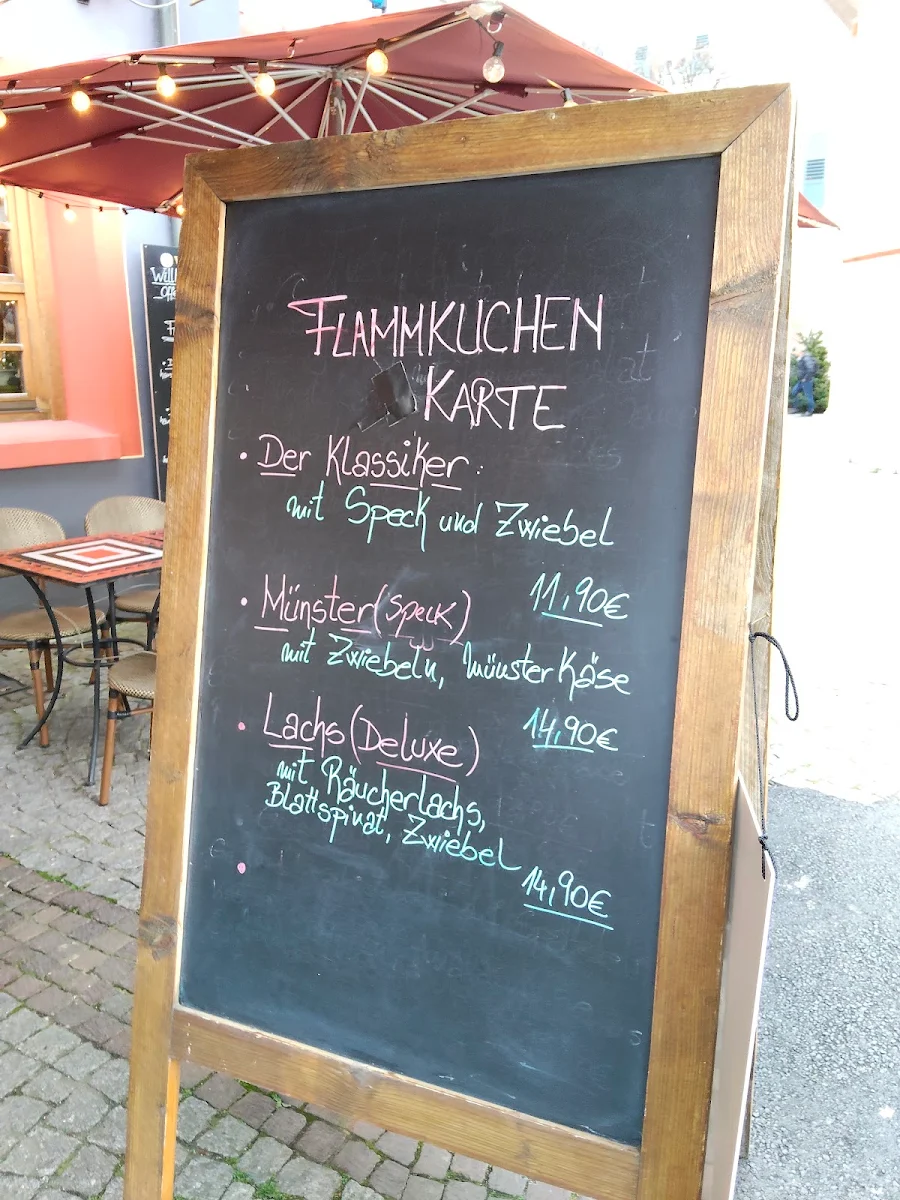 FLAMMKUCHEN
KARTE
• Der Klassiker:
mit Speck und Zwiebel
11,90€
• Münster (Speck)
mit Zwiebeln, Münster Käse
14,90€
• Lachs (Deluxe)
mit Räucherlachs,
Blattspinat, Zwiebel
14,90€
•